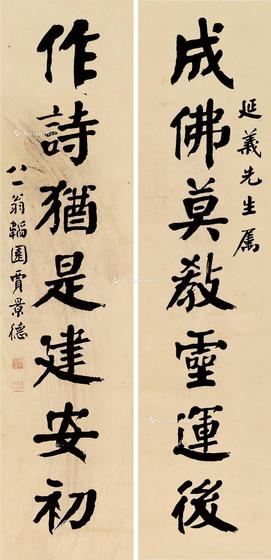 延義先生屬
成佛莫教靈運後
作詩猶是建安初
八一翁韜園賈景德